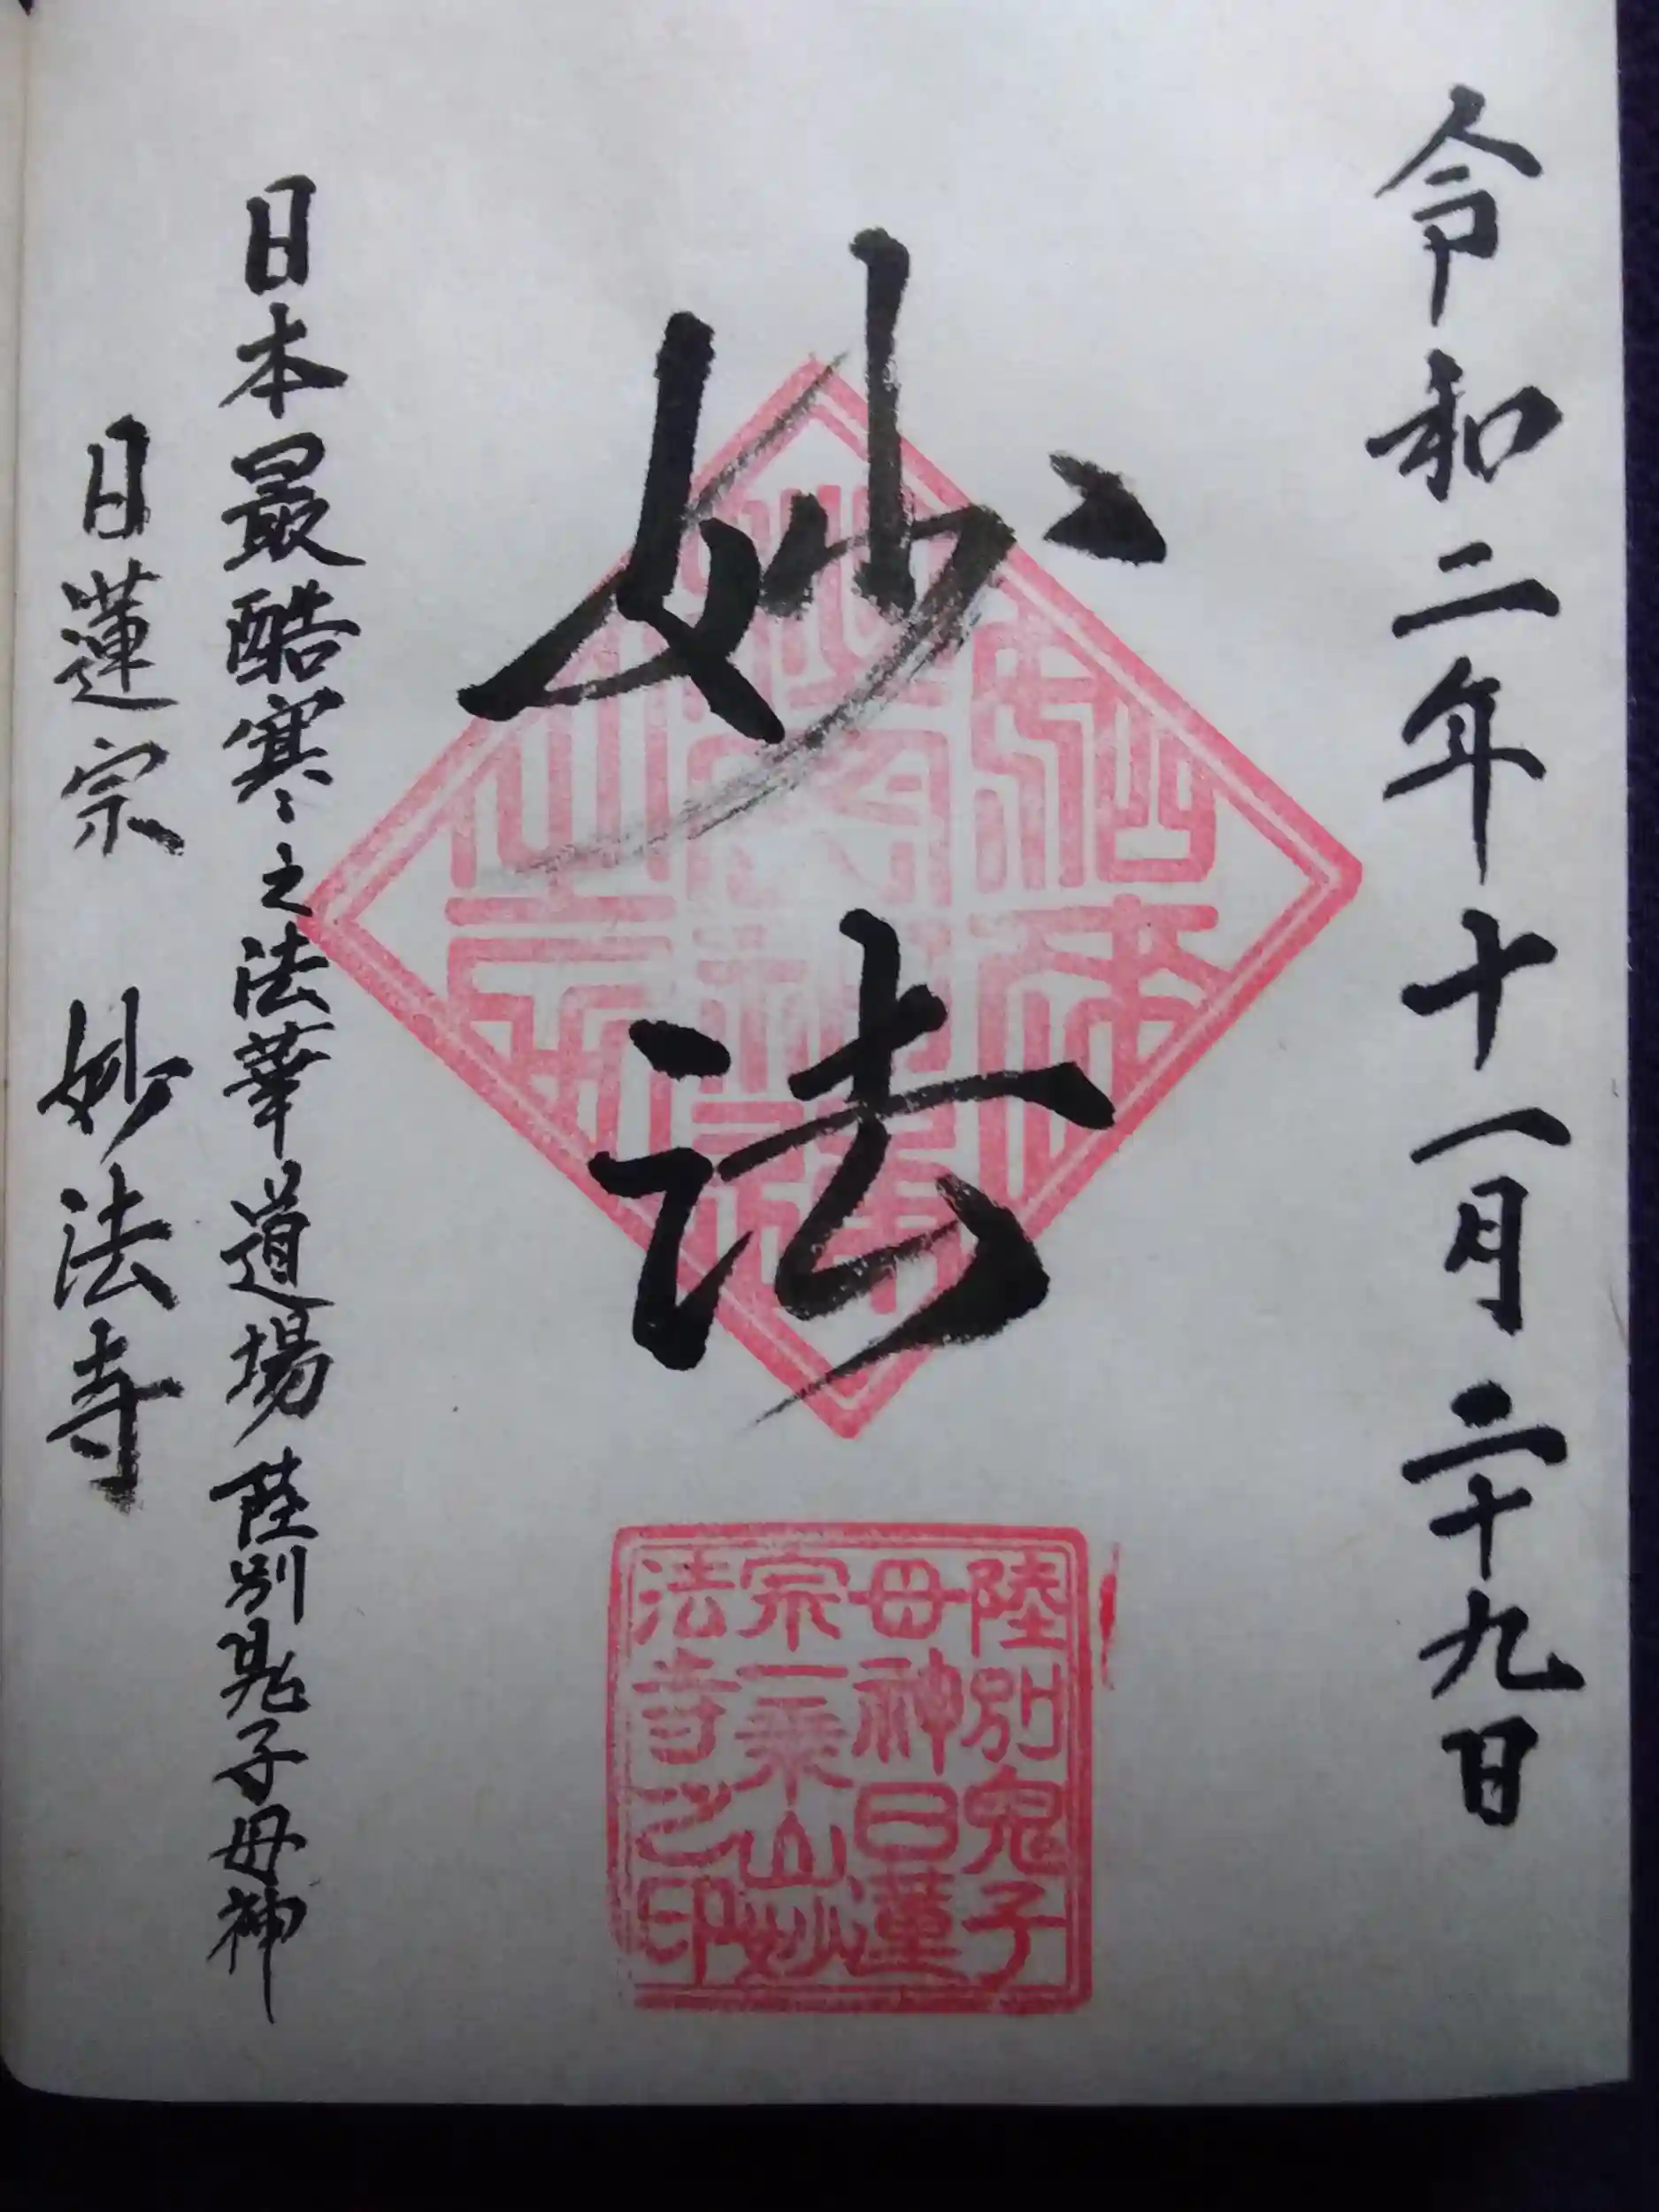 令和二年十一月二十九日
妙法
日本最酷寒之法華道場 陸別鬼子母神
日蓮宗 妙法寺
陸別鬼子
母神日蓮
宗一乗山妙
法寺之印